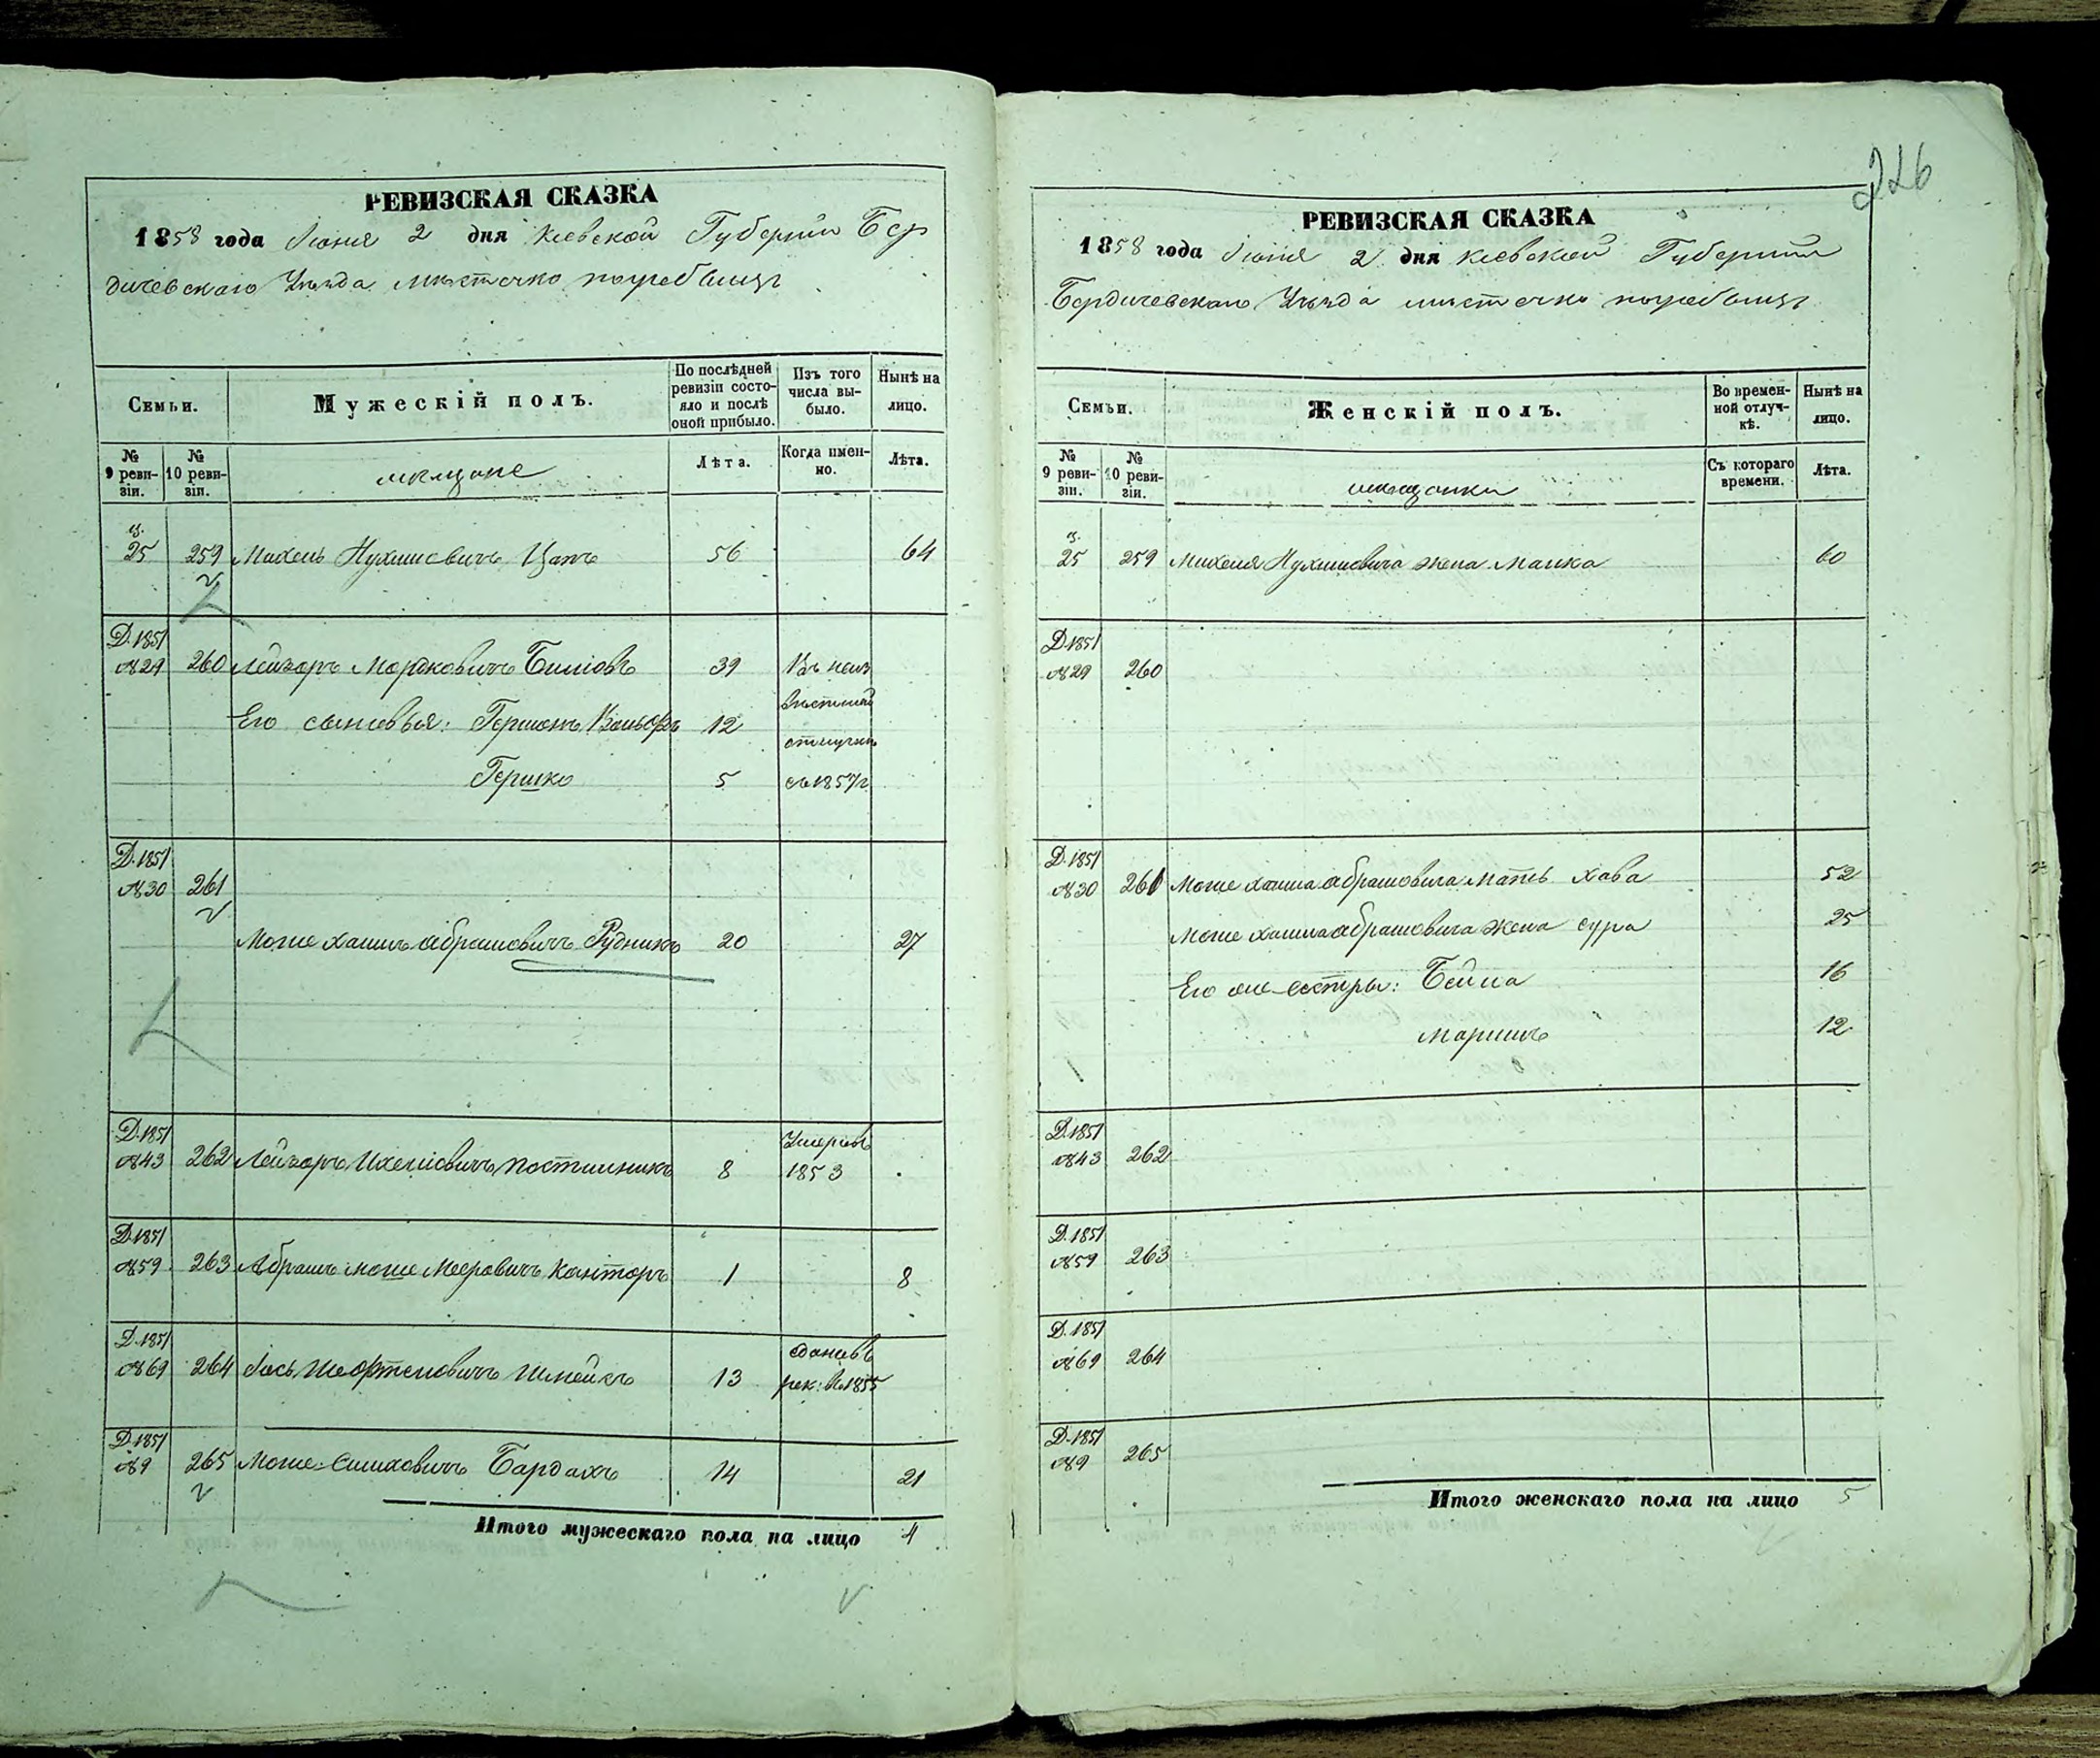 226
РЕВИЗСКАЯ СКАЗКА
1858 года Іюня 2 дня Кіевской Губерніи Бер
дичевскаго Уѣзда мѣстечко погребищъ
Семьи.
Мужескій полъ.
По послѣдней ревизіи состояло и послѣ оной прибыло.
Изъ того числа выбыло.
Нынѣ на лицо.
№ 9 ревизіи.
№ 10 ревизіи.
мѣщане
Лѣта.
Когда именно.
Лѣта.
25 259 Михель Нухимовичъ Цапъ 56 64
Д. 1851
№29 260 Лейзоръ Мордковичъ 39 въ неиз
вѣстной
Его сыновья: Гершонъ 12
отлучкѣ
Гершко 5 съ 1857 г
Д. 1851
№30 261
Моше хаимъ абрамовичъ Рудникъ 20 27
Д. 1851 Умеръ въ
№43 262 Лейзоръ Ихелiовичъ постильникъ 8 1853
Д. 1851
№59 263 Абрамъ моше Мееровичъ Канторъ 1 8
Д. 1851 сданъ въ
№69 264 Іось 13 рек: въ 1855
Д. 1851
№9 265 Моше Симховичъ Бардахъ 14 21
Итого мужескаго пола на лицо 4
РЕВИЗСКАЯ СКАЗКА
1858 года Іюня 2 дня Кіевской Губерніи
Бердичевскаго Уѣзда мѣстечко погребищъ
Семьи.
Женскій полъ.
Во временной отлучкѣ.
Нынѣ на лицо.
№ 9 ревизіи.
№ 10 ревизіи.
мѣщанки
Съ котораго времени.
Лѣта.
25 259 Михеля Нухимовича жена Малка 60
Д. 1851
№29 260
Д. 1851
№30 261 Моше хаима абрамовича мать хава 52
Моше хаима абрамовича жена сура 25
Его же сестры: Бейла 16
Маримъ 12
Д. 1851
№43 262
Д. 1851
№59 263
Д. 1851
№69 264
Д. 1851
№9 265
Итого женскаго пола на лицо 5